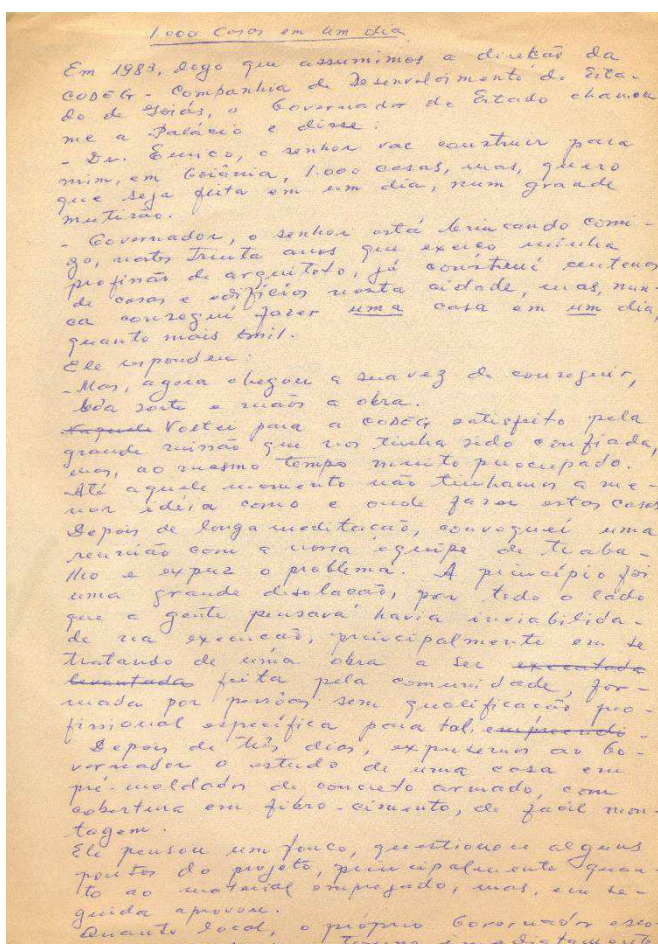 1.000 Casas em um dia
Em 1983, logo que assumimos a direção da
CODEG - Companhia de Desenvolvimento do Esta-
do de Goiás, o Governador do Estado chamou
me a Palácio e disse:
- Dr. Eurico, o senhor vae construir para
mim, em Goiânia, 1.000 casas, mas, quero
que seja feita em um dia, num grande
mutirão.
- Governador, o senhor está brincando comi-
go, nestes trinta anos que exerço minha
profissão de arquiteto, já construí centenas
de casas e edifícios nesta cidade, mas, nun-
ca consegui fazer uma casa em um dia,
quanto mais mil.
Ele respondeu:
- Mas, agora chegou a sua vez de conseguir,
boa sorte e mãos a obra.
Naquele Voltei para a CODEG satisfeito pela
grande missão que nos tinha sido confiada,
mas, ao mesmo tempo muito preocupado.
Até aquele momento não tinhamos a me-
nor idéia como e onde fazer estas casas
Depois de longa meditação, convoquei uma
reunião com a nossa equipe de traba-
lho e expuz o problema. A princípio foi
uma grande desolação, por todo o lado
que a gente pensava havia inviabilida-
de na execução, principalmente em se
tratando de uma obra a ser executada
levantada feita pela comunidade, for-
mada por pessôas sem qualificação pro-
fissional específica para tal.
Depois de três dias, expusemos ao Go-
vernador o estudo de uma casa em
pré-moldados de concreto armado, com
cobertura em fibro-cimento, de facil mon-
tagem.
Ele pensou um pouco, questionou alguns
pontos do projeto, principalmente quan-
to ao material empregado, mas, em se-
guida aprovou.
Quanto local, o próprio Governador